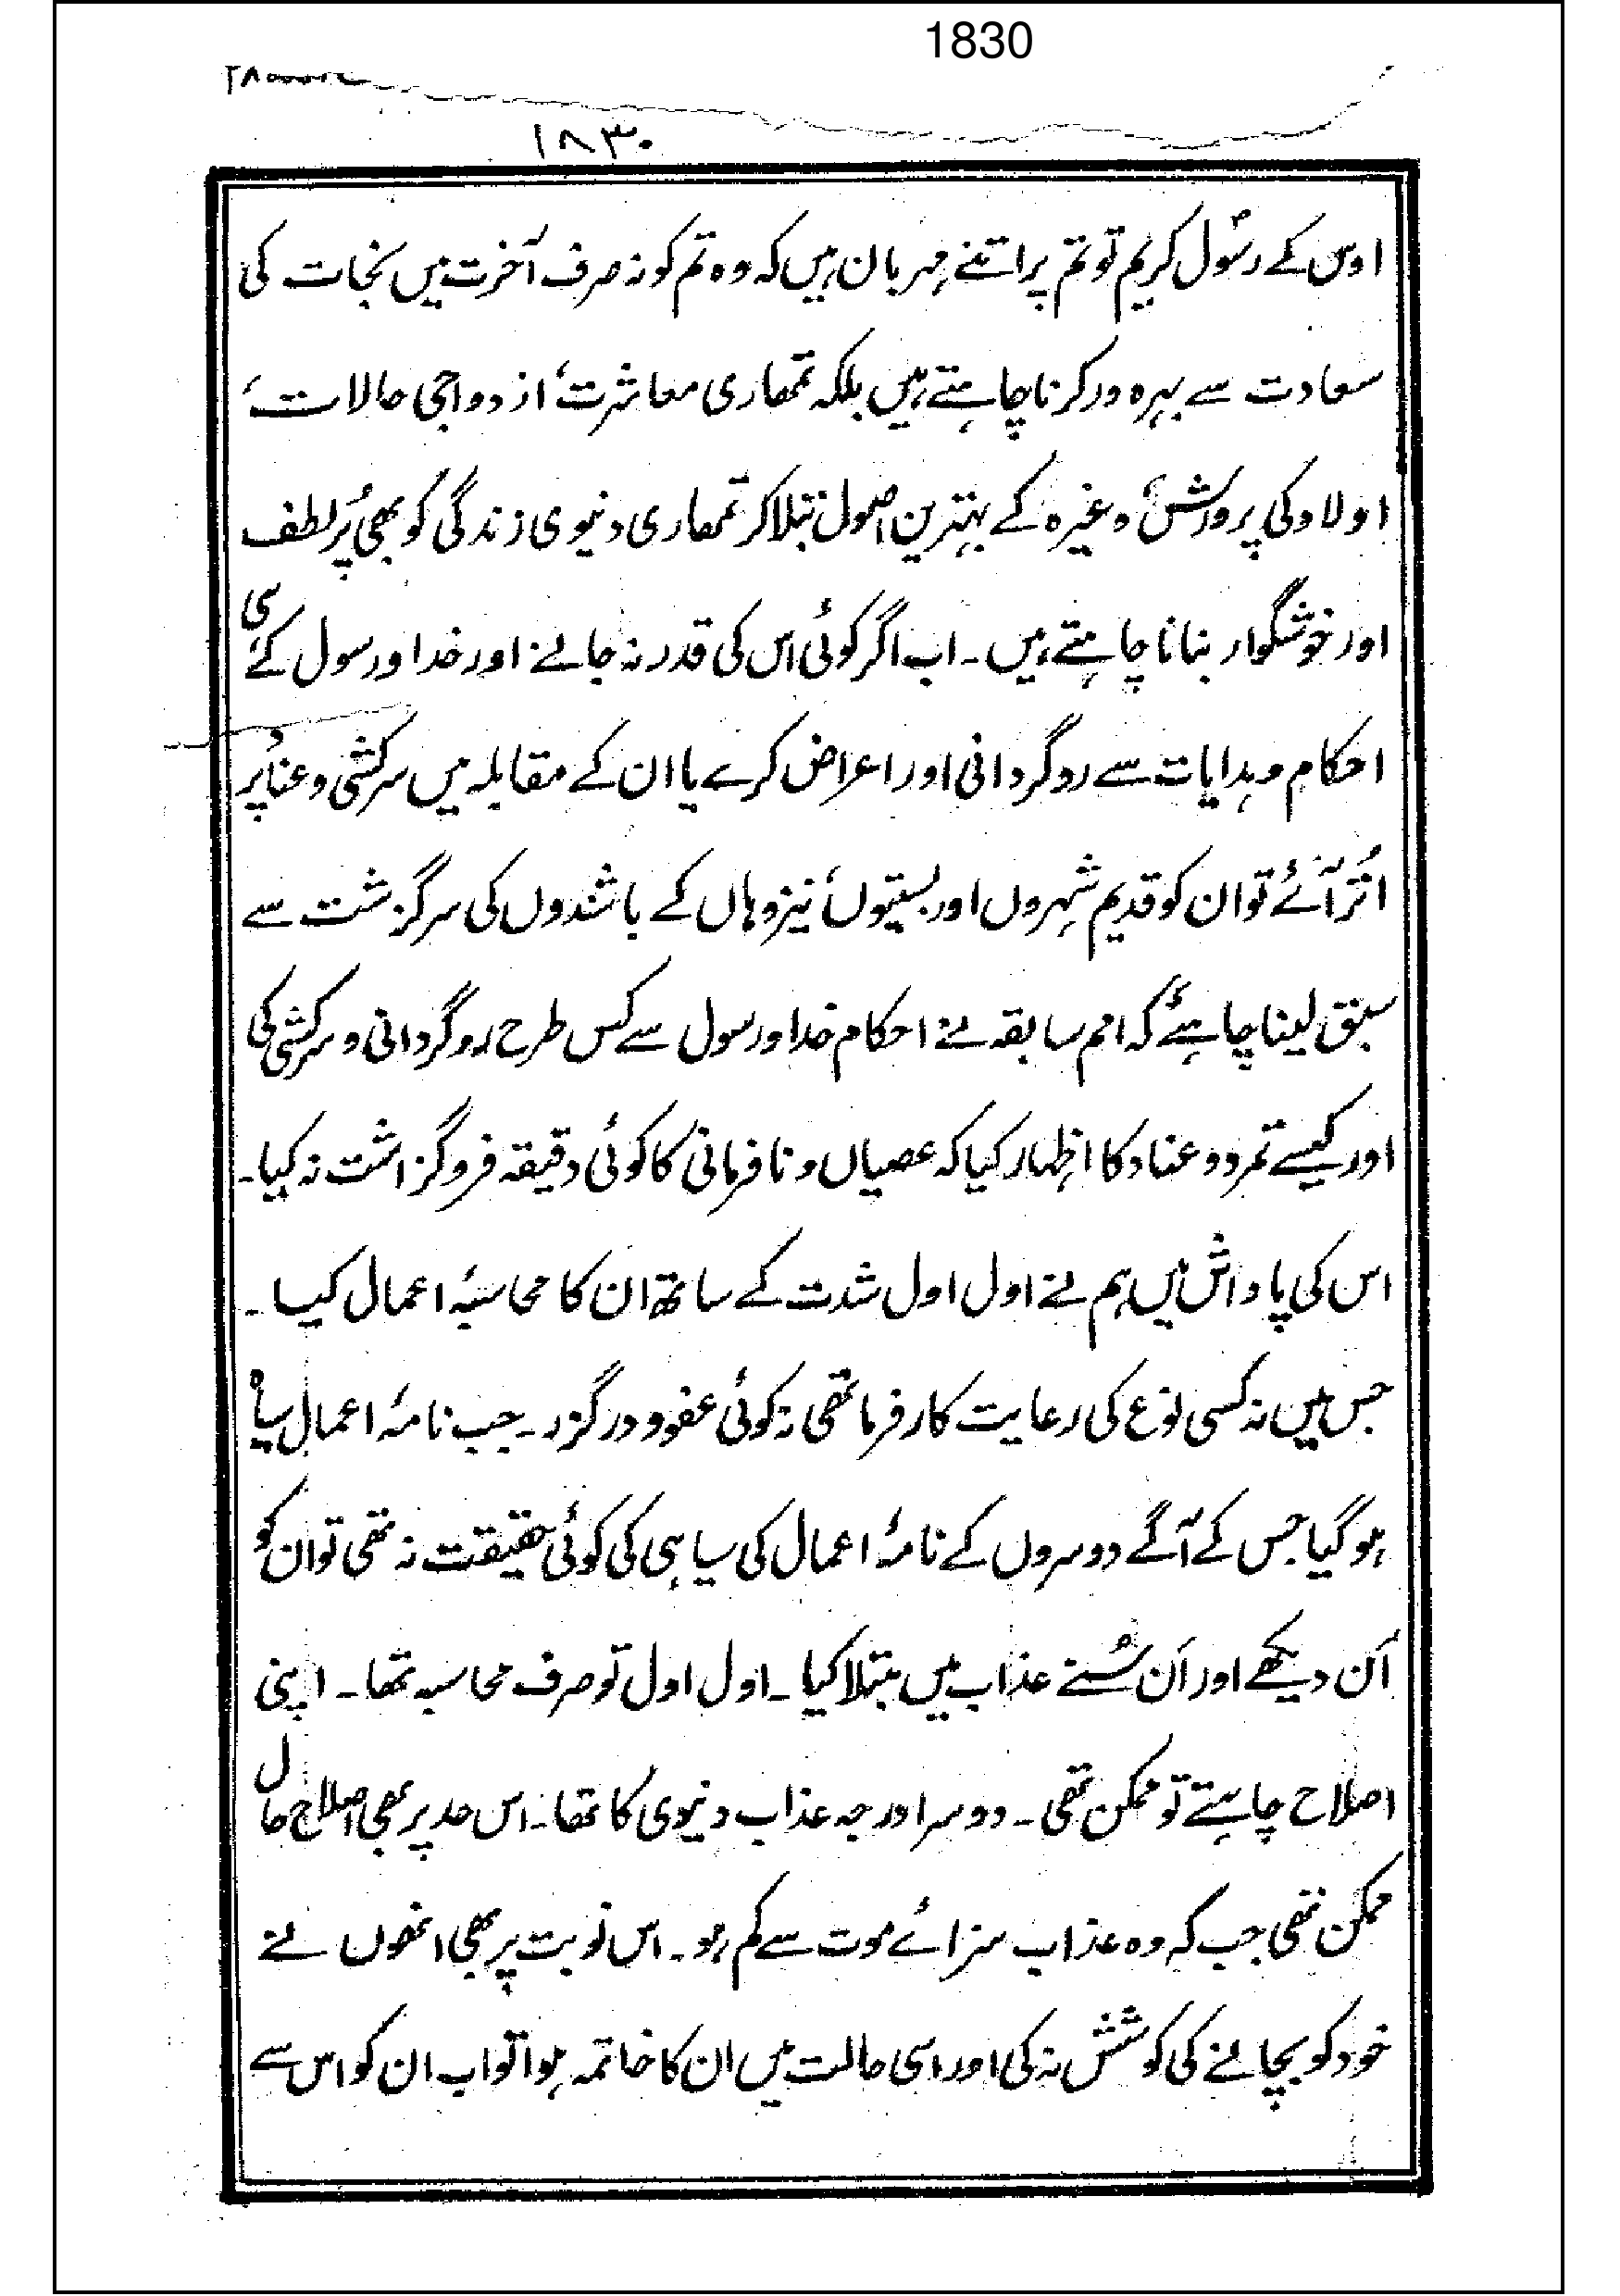 1830
۱۸۳۰
اوس کے رسُولؐ کریم تو تم پر اتنے مہربان ہیں کہ وہ تم کو نہ صرف آخرت میں نجات کی
سعادت سے بہرہ ور کرنا چاہتے ہیں بلکہ تمھاری معاشرت، ازدواجی حالات،
اولاد کی پرورش، وغیرہ کے بہترین اصول بتلا کر تمھاری دنیوی زندگی کو بھی پُرلطف
اور خوشگوار بنانا چاہتے ہیں۔ اب اگر کوئی اس کی قدر نہ جانے اور خدا و رسول کے
احکام و ہدایات سے روگردانی اور اعراض کرے یا ان کے مقابلہ میں سرکشی و عناد پر
اُتر آئے تو ان کو قدیم شہروں اور بستیوں، نیز وہاں کے باشندوں کی سرگزشت سے
سبق لینا چاہئے کہ امم سابقہ نے احکام خدا و رسول سے کس طرح روگردانی و سرکشی کی
اور کیسے تمرد و عناد کا اظہار کیا کہ عصیاں و نافرمانی کا کوئی دقیقہ فروگزاشت نہ کیا۔
اس کی پاداش میں ہم نے اول اول شدت کے ساتھ ان کا محاسبۂ اعمال کیا۔
جس میں نہ کسی نوع کی رعایت کارفرما تھی نہ کوئی عفو و درگزر۔ جب نامۂ اعمال سیاہ
ہو گیا جس کے آگے دوسروں کے نامۂ اعمال کی سیاہی کی کوئی حقیقت نہ تھی تو ان کو
اَن دیکھے اور اَن سُنے عذاب میں مبتلا کیا۔ اول اول تو صرف محاسبہ تھا۔ اپنی
اصلاح چاہتے تو ممکن تھی۔ دوسرا درجہ عذاب دنیوی کا تھا۔ اس حد پر بھی اصلاح حال
ممکن تھی جب کہ وہ عذاب سزائے موت سے کم ہو۔ اس نوبت پر بھی انھوں نے
خود کو بچانے کی کوشش نہ کی اور اسی حالت میں ان کا خاتمہ ہوا تو اب ان کو اس سے